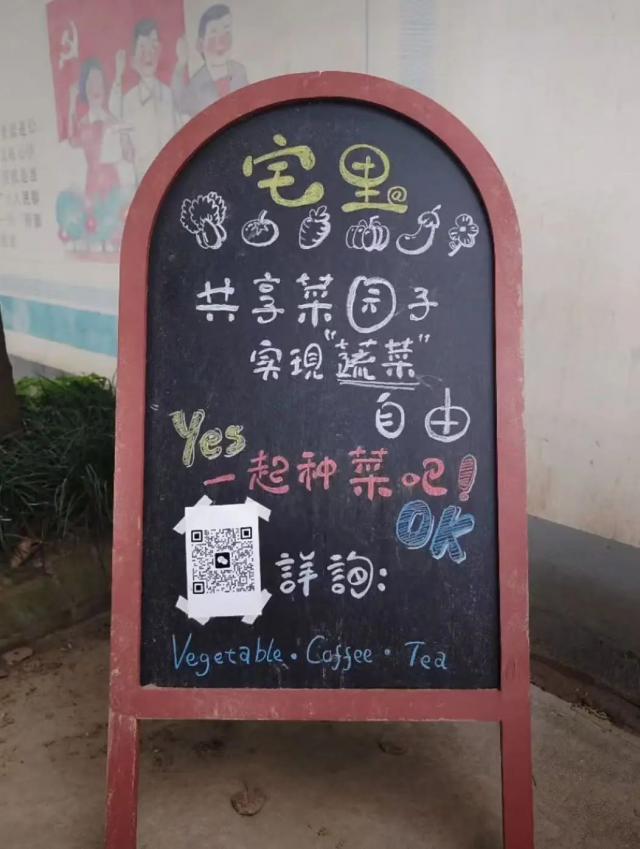 宅里@
共享菜园子
实現"蔬菜"
自由
Yes
一起种菜吧!
OK
詳詢:
Vegetable · Coffee · Tea